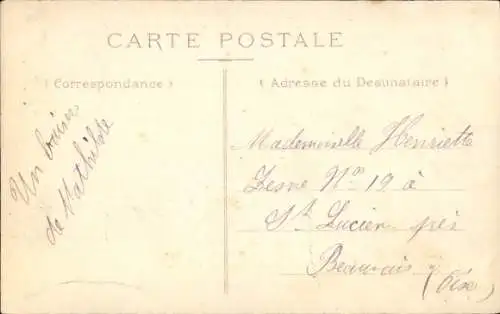 CARTE POSTALE
( Correspondance )
Un baiser
de Mathilde
( Adresse du Destinataire )
Mademoiselle Henriette
Lesne Nº 19 à
St Lucien près
Beauvais
(Oise)